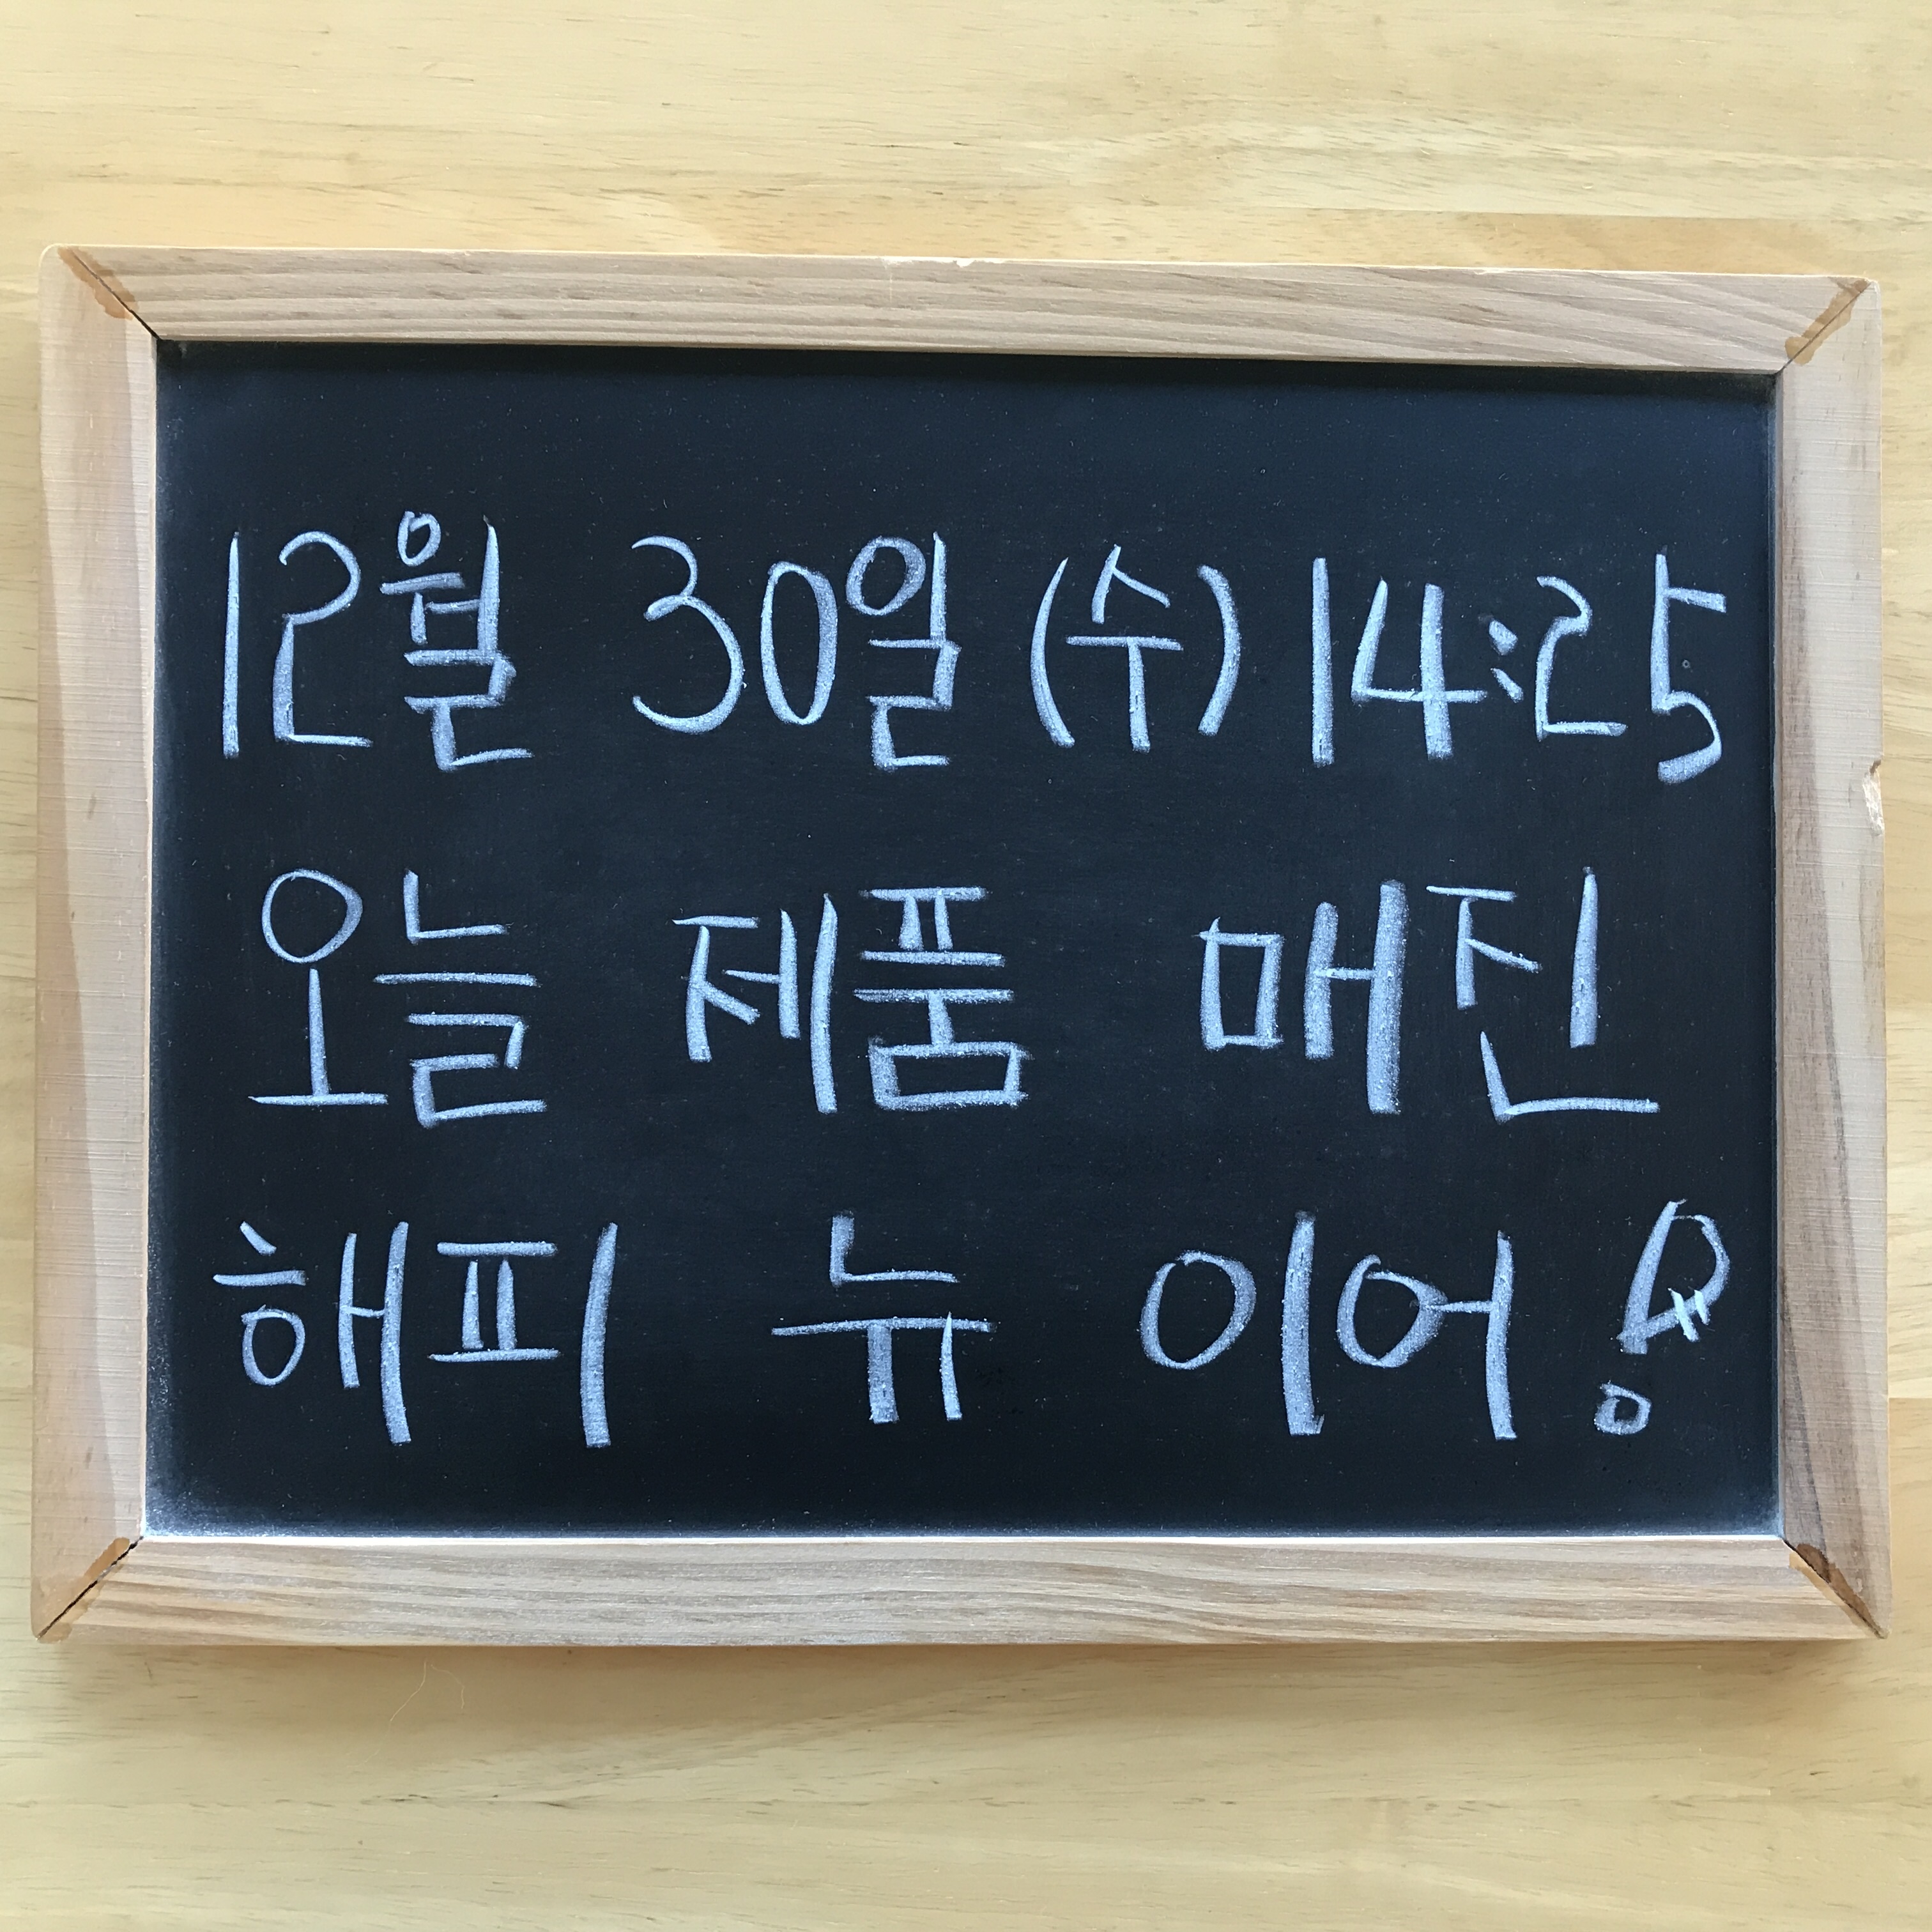 12월 30일 (수) 14:25
오늘 제품 매진
해피 뉴 이어!